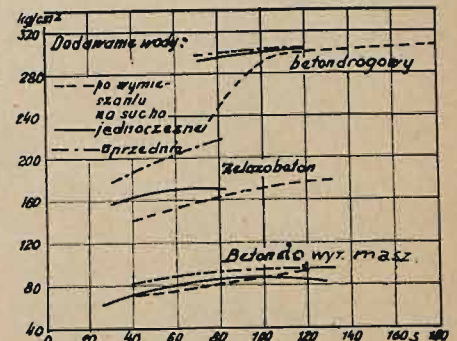 kg/cm²
320
280
240
200
160
120
80
40
Dodawanie wody:
po wymie-
szaniu
na sucho
jednoczesne
uprzednie
beton drogowy
Żelazobeton
Beton do wyr. masz.
0 20 40 60 80 100 120 140 160 s 180